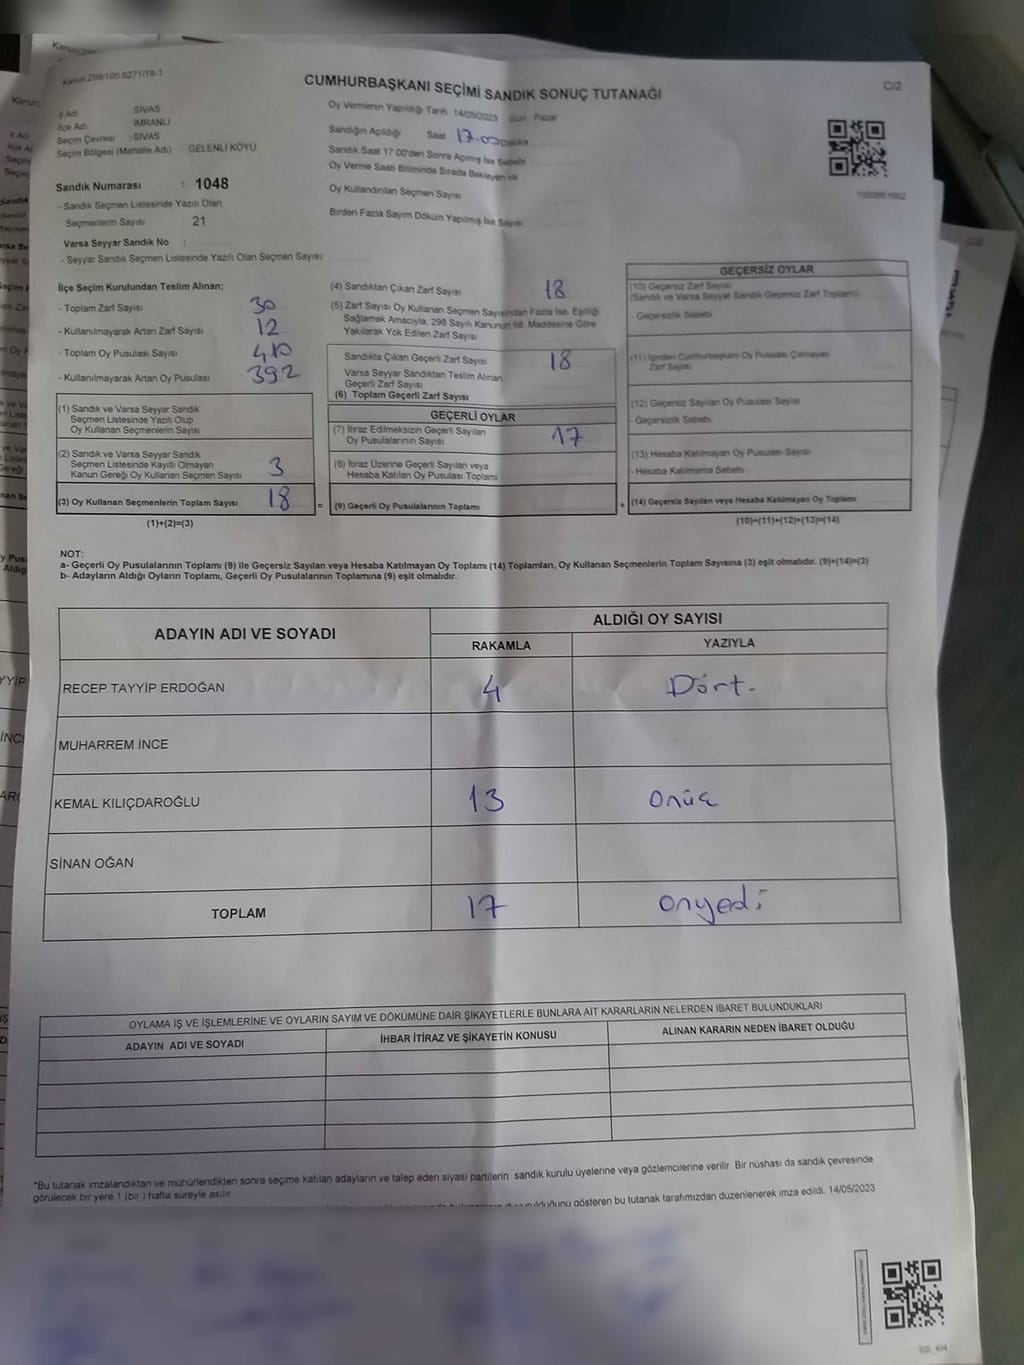 Kanun 298/105.6271/18-1
CUMHURBAŞKANI SEÇİMİ SANDIK SONUÇ TUTANAĞI
C/2
İl Adı SİVAS
İlçe Adı İMRANLI
Seçim Çevresi : SİVAS
Seçim Bölgesi (Mahalle Adı) GELENLİ KÖYÜ
Oy Vermenin Yapıldığı Tarih 14/05/2023 Gün : Pazar
Sandığın Açıldığı Saat 17.00 Dakika
Sandık Saat 17:00'den Sonra Açmış İse Sebebi
Oy Verme Saati Bitiminde Sırada Bekleyen ve
Oy Kullandırılan Seçmen Sayısı
Birden Fazla Sayım Döküm Yapılmış İse Sayısı
Sandık Numarası : 1048
- Sandık Seçmen Listesinde Yazılı Olan
Seçmenlerin Sayısı 21
Varsa Seyyar Sandık No :
- Seyyar Sandık Seçmen Listesinde Yazılı Olan Seçmen Sayısı
İlçe Seçim Kurulundan Teslim Alınan;
- Toplam Zarf Sayısı 30
- Kullanılmayarak Artan Zarf Sayısı 12
- Toplam Oy Pusulası Sayısı 410
- Kullanılmayarak Artan Oy Pusulası 392
(1) Sandık ve Varsa Seyyar Sandık
Seçmen Listesinde Yazılı Olup
Oy Kullanan Seçmenlerin Sayısı
(2) Sandık ve Varsa Seyyar Sandık
Seçmen Listesinde Kayıtlı Olmayan
Kanun Gereği Oy Kullanan Seçmen Sayısı 3
(3) Oy Kullanan Seçmenlerin Toplam Sayısı 18
(1)+(2)=(3)
(4) Sandıktan Çıkan Zarf Sayısı 18
(5) Zarf Sayısı Oy Kullanan Seçmen Sayısından Fazla İse, Eşitliği
Sağlamak Amacıyla, 298 Sayılı Kanunun 98. Maddesine Göre
Yakılarak Yok Edilen Zarf Sayısı
Sandıkta Çıkan Geçerli Zarf Sayısı 18
Varsa Seyyar Sandıktan Teslim Alınan
Geçerli Zarf Sayısı
(6) Toplam Geçerli Zarf Sayısı
GEÇERLİ OYLAR
(7) İtiraz Edilmeksizin Geçerli Sayılan
Oy Pusulalarının Sayısı 17
(8) İtiraz Üzerine Geçerli Sayılan veya
Hesaba Katılan Oy Pusulası Toplamı
= (9) Geçerli Oy Pusulalarının Toplamı
GEÇERSİZ OYLAR
(10) Geçersiz Zarf Sayısı
(Sandık ve Varsa Seyyar Sandık Geçersiz Zarf Toplamı)
- Geçersizlik Sebebi
(11) İçinden Cumhurbaşkanı Oy Pusulası Çıkmayan
Zarf Sayısı
(12) Geçersiz Sayılan Oy Pusulası Sayısı
- Geçersizlik Sebebi
(13) Hesaba Katılmayan Oy Pusulası Sayısı
- Hesaba Katılmama Sebebi
+ (14) Geçersiz Sayılan veya Hesaba Katılmayan Oy Toplamı
(10)+(11)+(12)+(13)=(14)
NOT:
a- Geçerli Oy Pusulalarının Toplamı (9) ile Geçersiz Sayılan veya Hesaba Katılmayan Oy Toplamı (14) Toplamları, Oy Kullanan Seçmenlerin Toplam Sayısına (3) eşit olmalıdır. (9)+(14)=(3)
b- Adayların Aldığı Oyların Toplamı, Geçerli Oy Pusulalarının Toplamına (9) eşit olmalıdır.
ADAYIN ADI VE SOYADI
ALDIĞI OY SAYISI
RAKAMLA YAZIYLA
RECEP TAYYİP ERDOĞAN 4 Dört.
MUHARREM İNCE
KEMAL KILIÇDAROĞLU 13 Onüç
SİNAN OĞAN
TOPLAM 17 onyedi
OYLAMA İŞ VE İŞLEMLERİNE VE OYLARIN SAYIM VE DÖKÜMÜNE DAİR ŞİKAYETLERLE BUNLARA AİT KARARLARIN NELERDEN İBARET BULUNDUKLARI
ADAYIN ADI VE SOYADI İHBAR İTİRAZ VE ŞİKAYETİN KONUSU ALINAN KARARIN NEDEN İBARET OLDUĞU
*Bu tutanak imzalandıktan ve mühürlendikten sonra seçime katılan adayların ve talep eden siyasi partilerin sandık kurulu üyelerine veya gözlemcilerine verilir Bir nüshası da sandık çevresinde
görülecek bir yere 1 (bir) hafta süreyle asılır
gösteren bu tutanak tarafımızdan düzenlenerek imza edildi. 14/05/2023